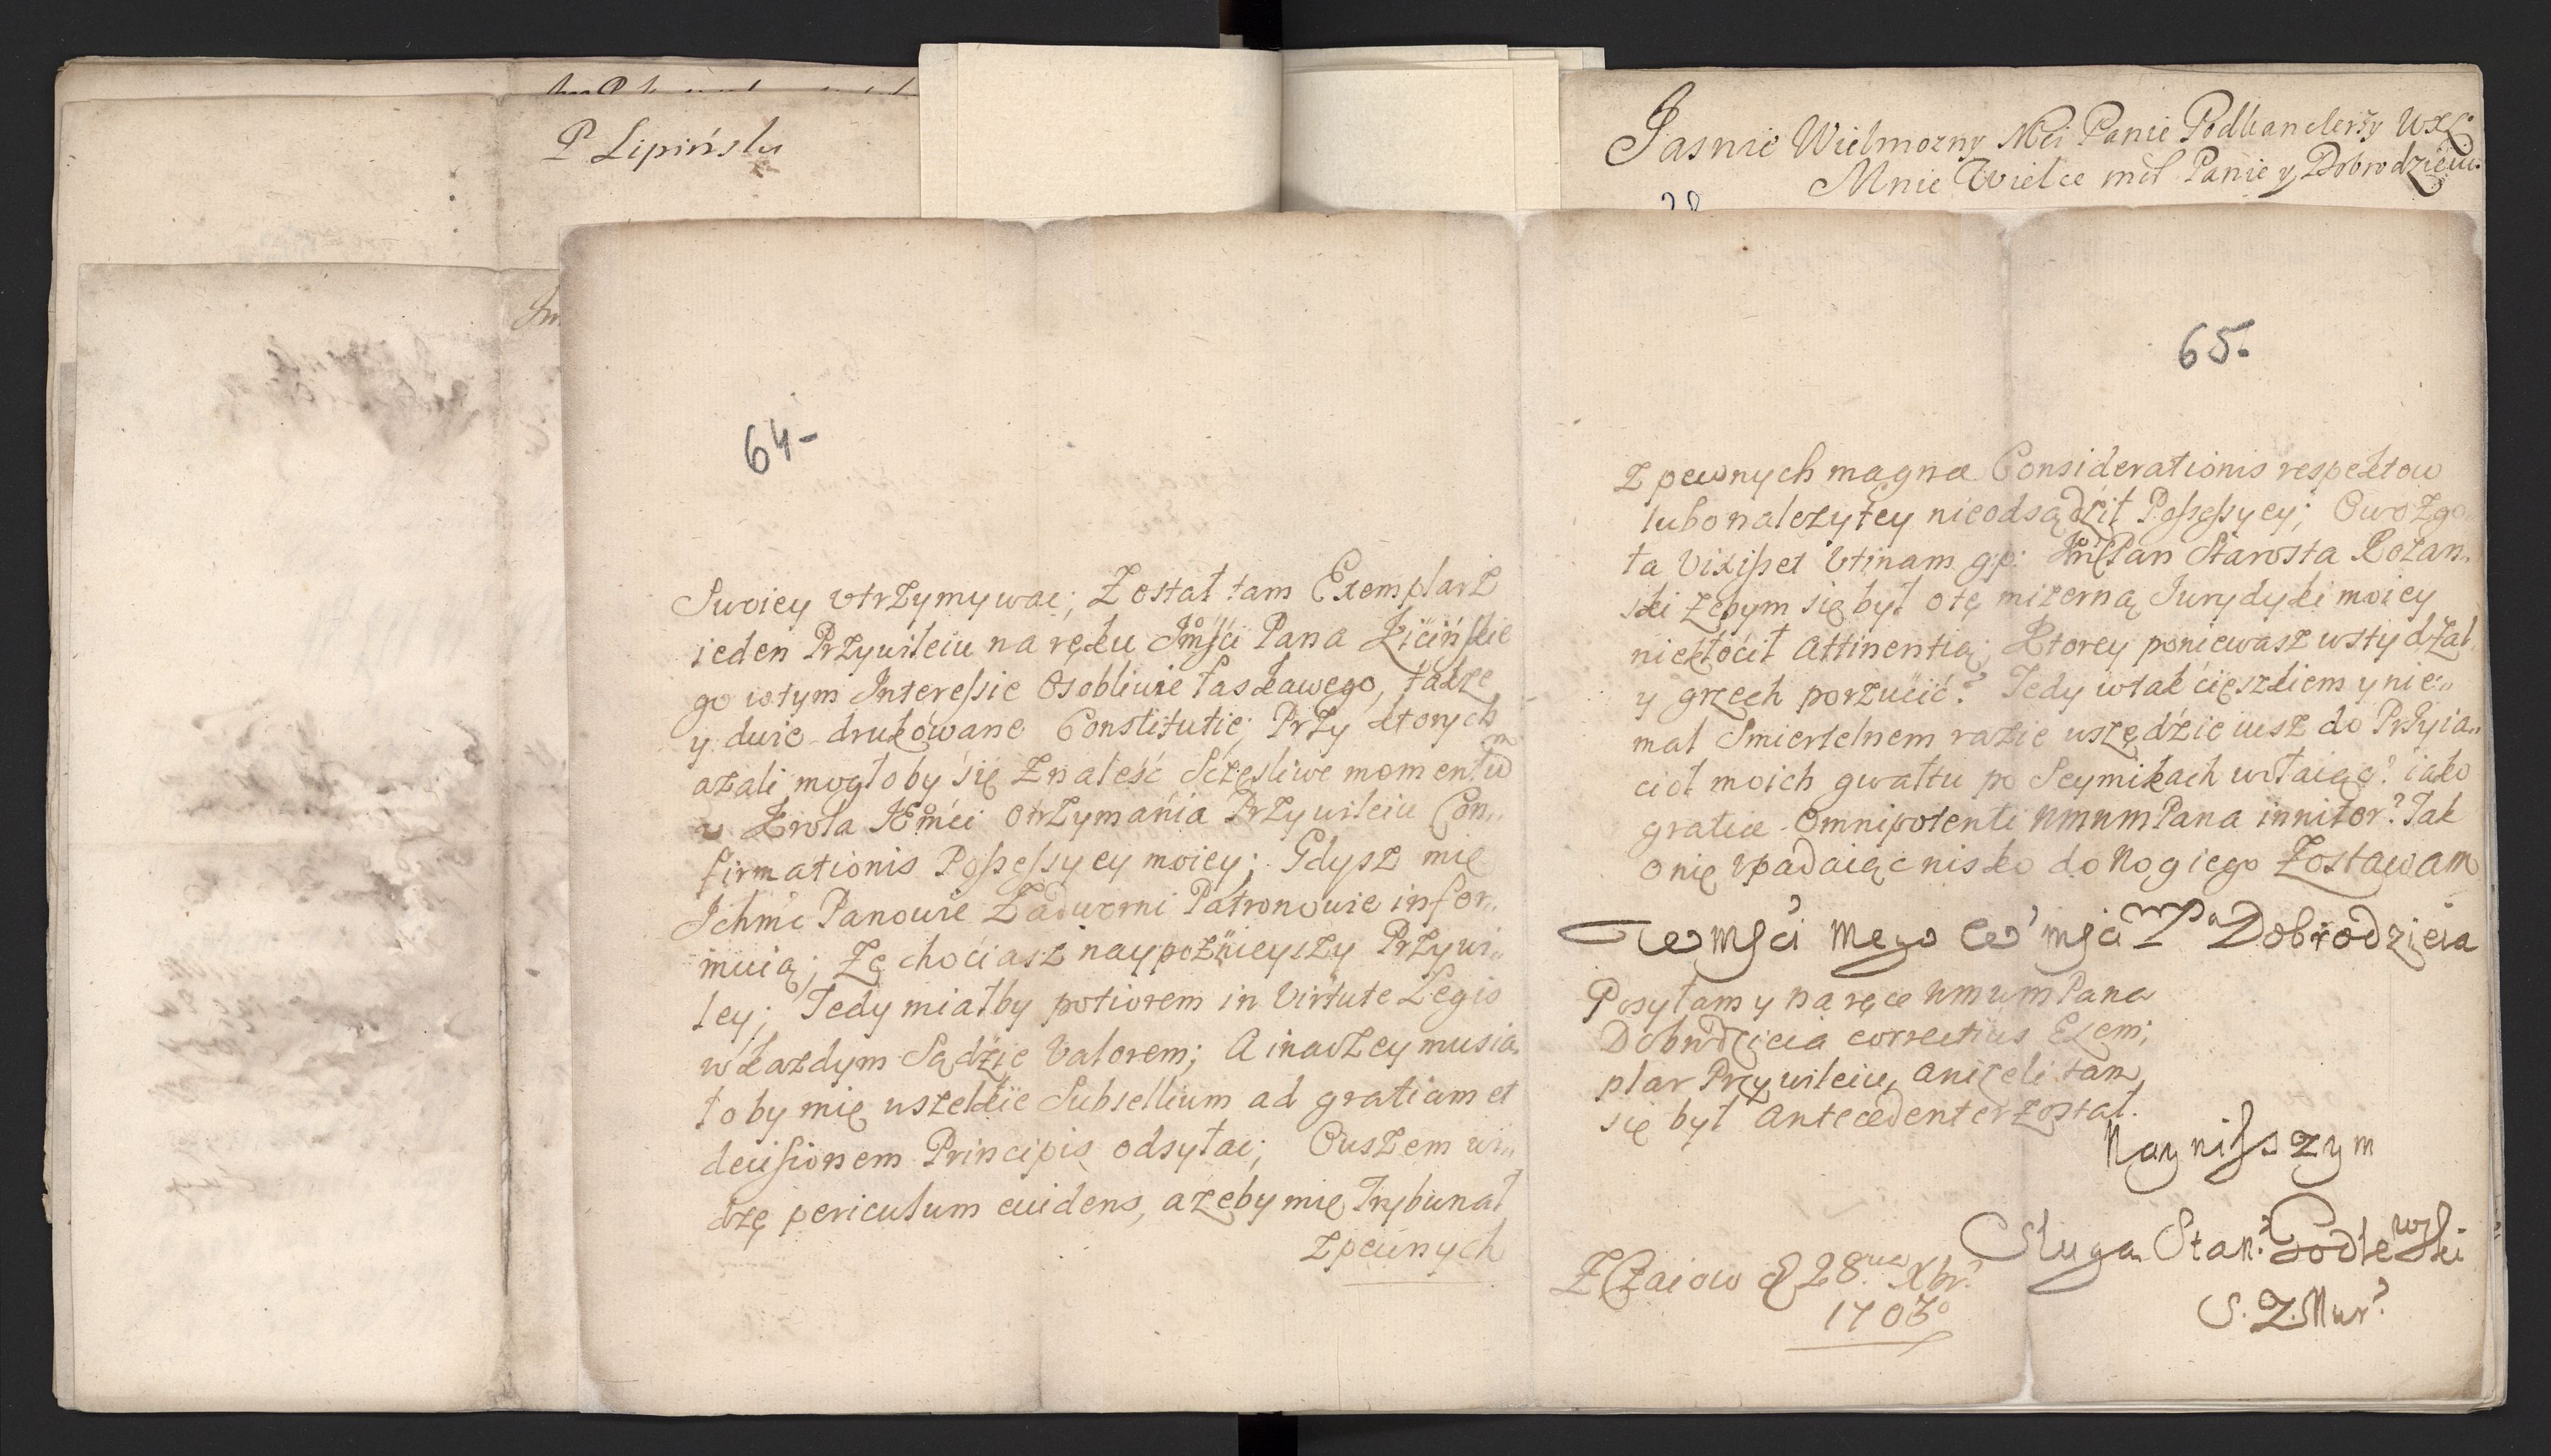 P Lipińsku
Jasnie Wielmozny Mci Panie Podkanclerzy WXL
Mnie Wielce mćł Panie y Dobrodzieiu.
64-
Swoiey vtrzymywac; Został tam Exemplarz
ieden Przywileiu na ręku Jmści Pana Kicińskie
go wtym Interessie Osobliwie łaskawego, także
y dwie drukowane Constitutie; Przy ktorych
azali mogłoby się Znaleść Sczęsliwe momentum
v Krola JEmći otrzymańia Przywileiu Con„
firmationis Possessyey moiey; Gdysz mię
Ichmć Panowie Zadworni Patronowie infor„
muią; Zę choćiasz naypoźnieyszy Przywi„
ley; Tedy miałby potiorem in Virtute Legis
w każdym Sądźie Valorem; A inaczey musia„
łoby mię wszelkie Subsellium ad gratiam et
decisionem Principis odsyłac; Owszem wi„
dzę periculum euidens, azeby mię Trybunał
Zpewnych
65.
Z pewnych magna Considerationis respektow
lubo należytey nieodsądźił Possessyey; Owoż go
ta Vixisset Vtinam g:p: JmśPan Starosta Rozan„
ski Zebym się był otę mizerną Jurydyki moiey
niekłoćił Attinentią; Ktorey poniewasz wstyd, żal
y grzech porzućić? Tedy wtak ćięszkiem y nie„
mal Smiertelnem razie wszędźie iusz do Przyia„
cioł moich gwałtu po Seymikach wołaiąc? iako
gratiæ Omnipotenti WmMmPana innitor? Tak
o nię vpadaiąc nisko do Nog iego Zostawam
WMsći mego Mśći Pa Dobrodzieia
Posyłam y na ręce WmMmPana
Dobrodzieia correctius Exem;
plar Przywileiu, anizeli tam
się był antecedenter został.
Nayniszszym
Sługa Stan: Godlewski
S. Z. Nur?
Z Czaiow d 28 Xbr?
1703°